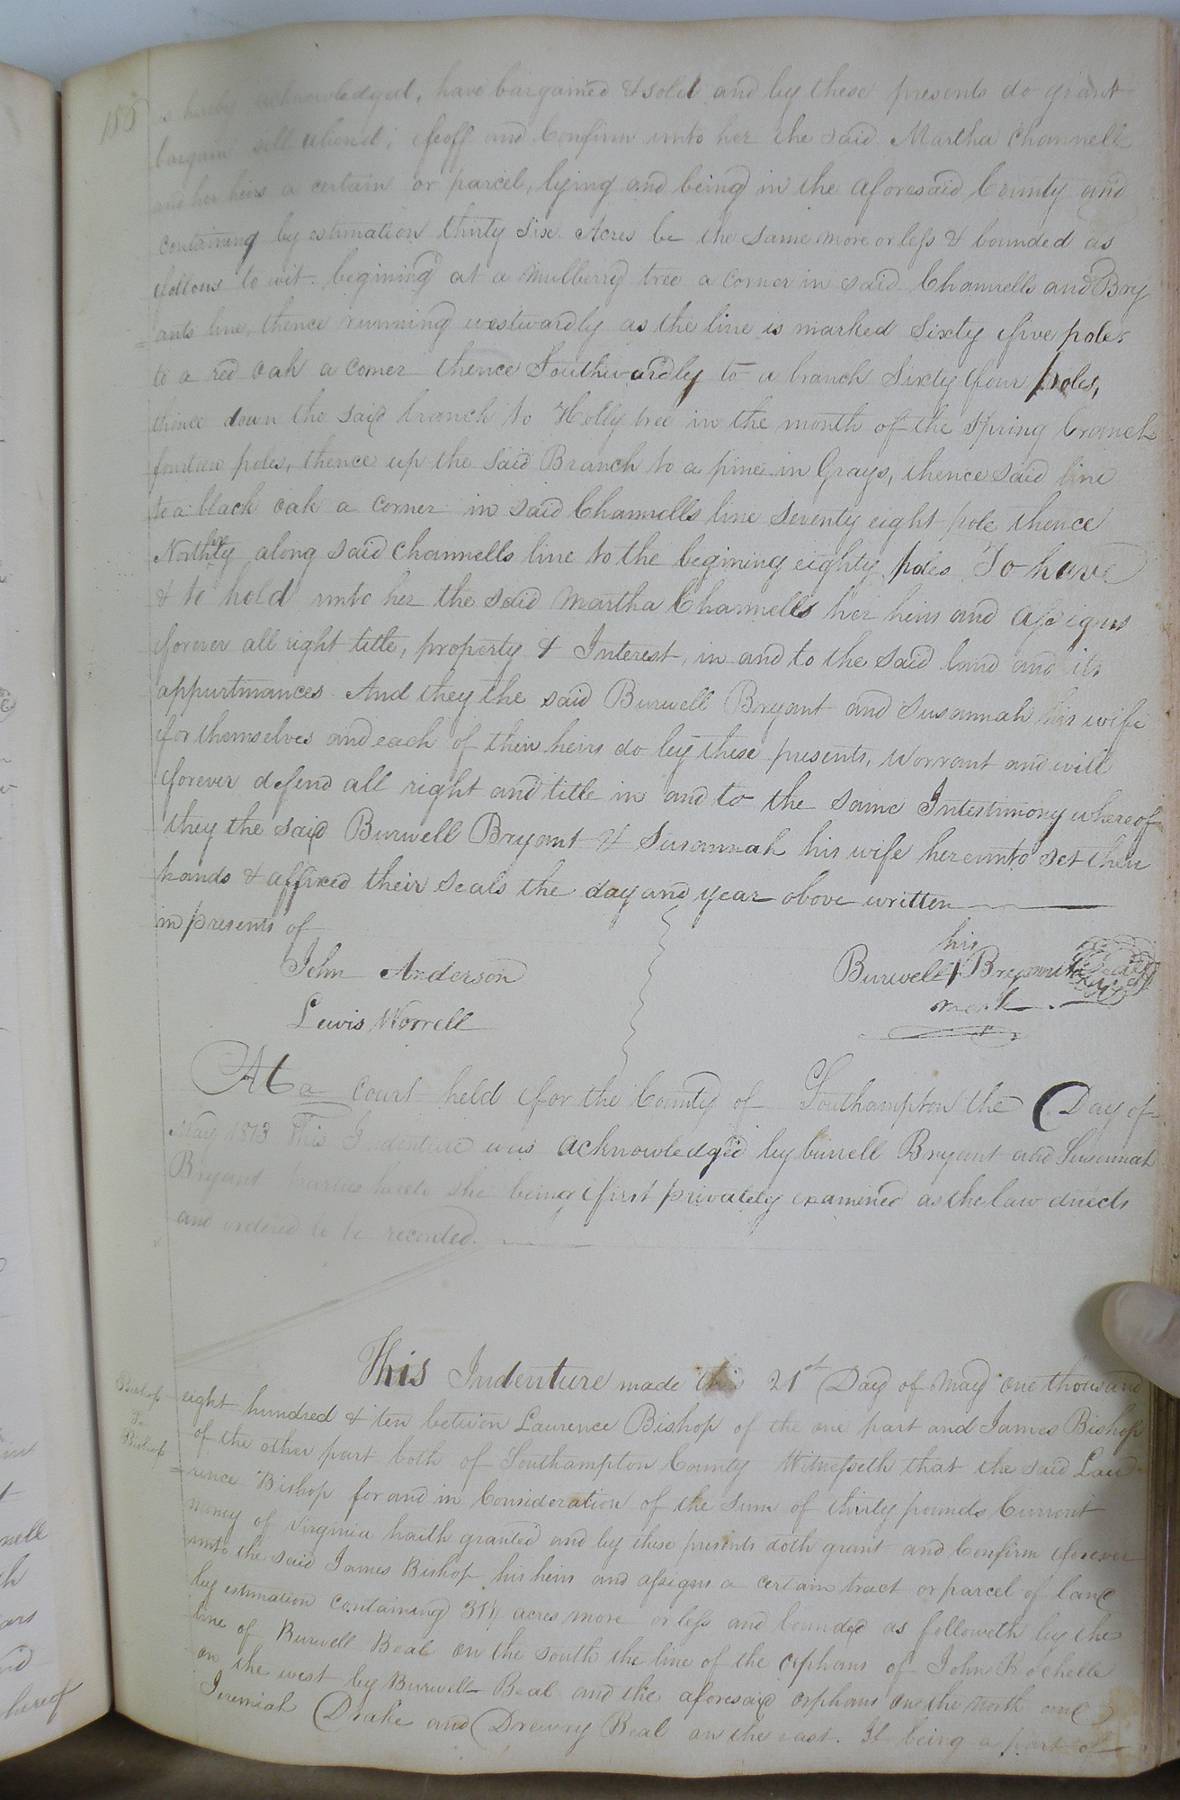 185
is hereby acknowledged, have bargained & sold and by these presents do grant
bargain sell aliend, efeoff and Confirm unto her the said Martha Channell
and her heirs a certain or parcel, lying and being in the aforesaid County and
containing by estimation thirty Six Acres be the same more or less & bounded as
follows to wit. begining at a Mulberry tree a corner in said Channells and Bry
=ants line, thence running westwardly as the line is marked Sixty five poles
to a red oak a corner thence Southwardly to a branch Sixty four poles,
thence down the said branch to Holly tree in the mouth of the Spring branch
fourteen poles, thence up the said Branch to a pine in Grays, thence said line
to a black oak a corner in said Channells line Seventy eight pole thence
Northly along said Channells line to the begining eighty poles To have
& to hold unto her the said Martha Channells her heirs and Assigns
forever all right title, property & Interest, in and to the said land and its
appurtinances And they the said Burwell Bryant and Susannah his wife
for themselves and each of their heirs do by these presents, Warrant and will
forever defend all right and title in and to the same Intestimony whereof
they the said Burwell Bryant & Susannah his wife hereunto set their
hands & affixed their Seals the day and year above written
in presents of
his
John Anderson
Burwell Bryant
Lewis Worrell
mark
At a Court held for the County of Southampton the Day of
May 1813 This Indenture was acknowledg'd by burrell Bryant and Susannah
Bryant parties hereto she being first privately examined as the law directs
and ordered to be recorded.
This Indenture made this 21st Day of May one thousand
Bishop
To
Bishop
eight hundred & ten between Laurence Bishop of the one part and James Bishop
of the other part both of Southampton County Witnesseth that the said Lau
=rence Bishop for and in Consideration of the Sum of thirty pounds Current
money of Virginia haith granted and by these presents doth grant and Confirm forever
unto the said James Bishop his heirs and assigns a certain tract or parcel of land
by estimation containing acres more or less and bounded as followeth by the
line of Burwell Beal on the south the line of the orphans of John Rochelle
on the west by Burwell Beal and the aforesaid orphans on the North and
Jeremiah Drake and Drewry Beal on the east. It being a part of